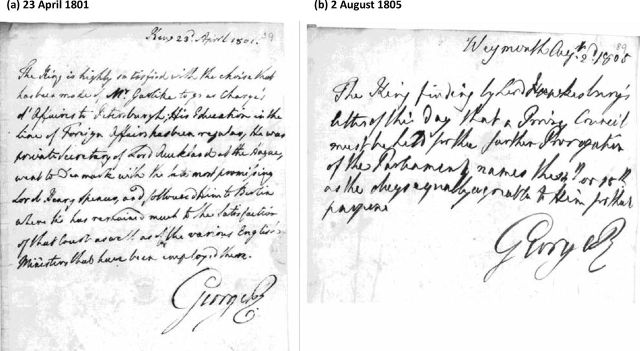 (a) 23 April 1801
Kew 23d. April 1801.
The King is highly satisfied with the choice that
has been made of Mr Garlike to go as Chargé
d'Affaires to Petersburgh, His Education in the
line of Foreign Affairs has been regular, He was
private secretary of Lord Auckland at the Hague,
went to Denmark with the late most promising
Lord Henry Spencer, and followed him to Berlin
where he has remained much to the satisfaction
of that Court as well as of the various English
Ministers that have been employed there.
George R
(b) 2 August 1805
89
Weymouth Augt. 2d. 1805
The King finding by Lord Hawkesbury's
letter of this day that a Privy Council
must be held for the further Prorogation
of the Parliament, names the or
as the days equally agreable to Him for that
purpose
George R